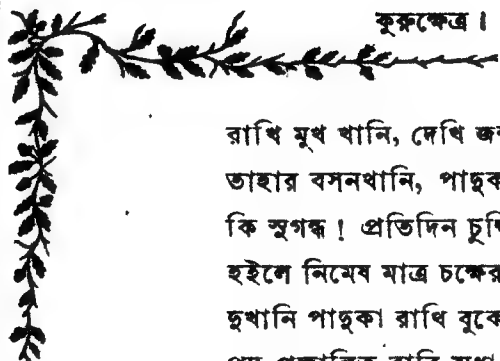 কুরুক্ষেত্র।
রাখি মুখ খানি, দেখি
তাহার বসনখানি,
কি সুগন্ধ! প্রতিদিন
হইলে নিমেষ মাত্র চক্ষের
দুখানি পাদুকা রাখি বুকে